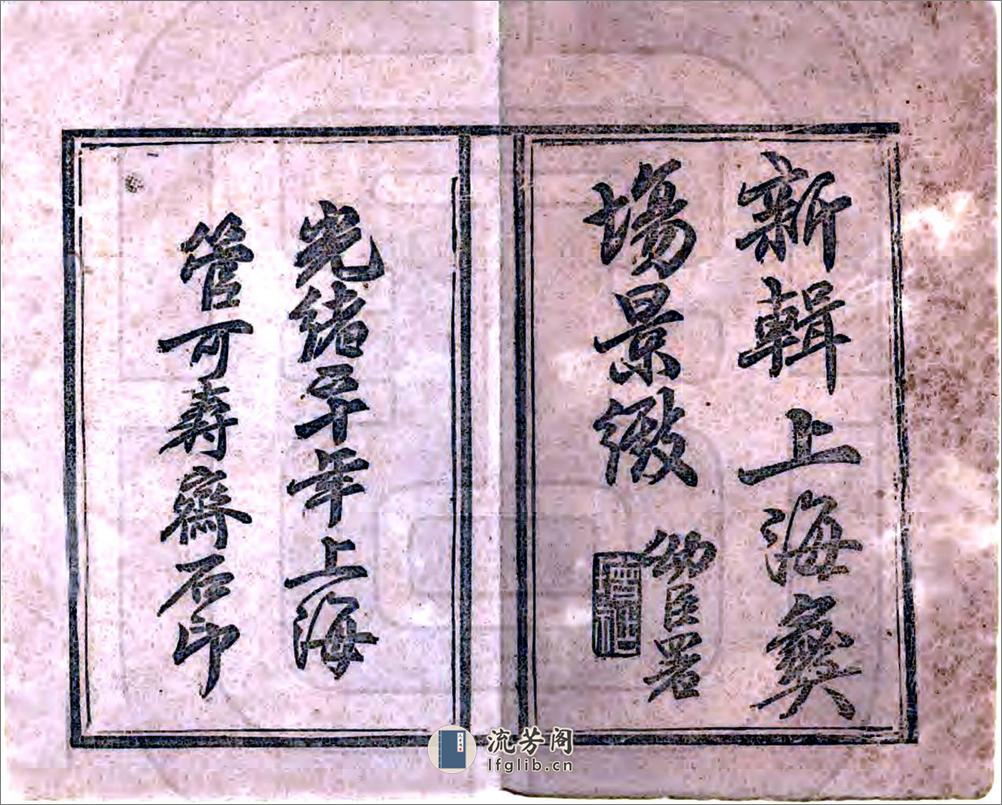 新輯上海彝
場景緻
幼臣署
光緒二十年上海
管可壽齋石印
流芳阁
lfglib.cn